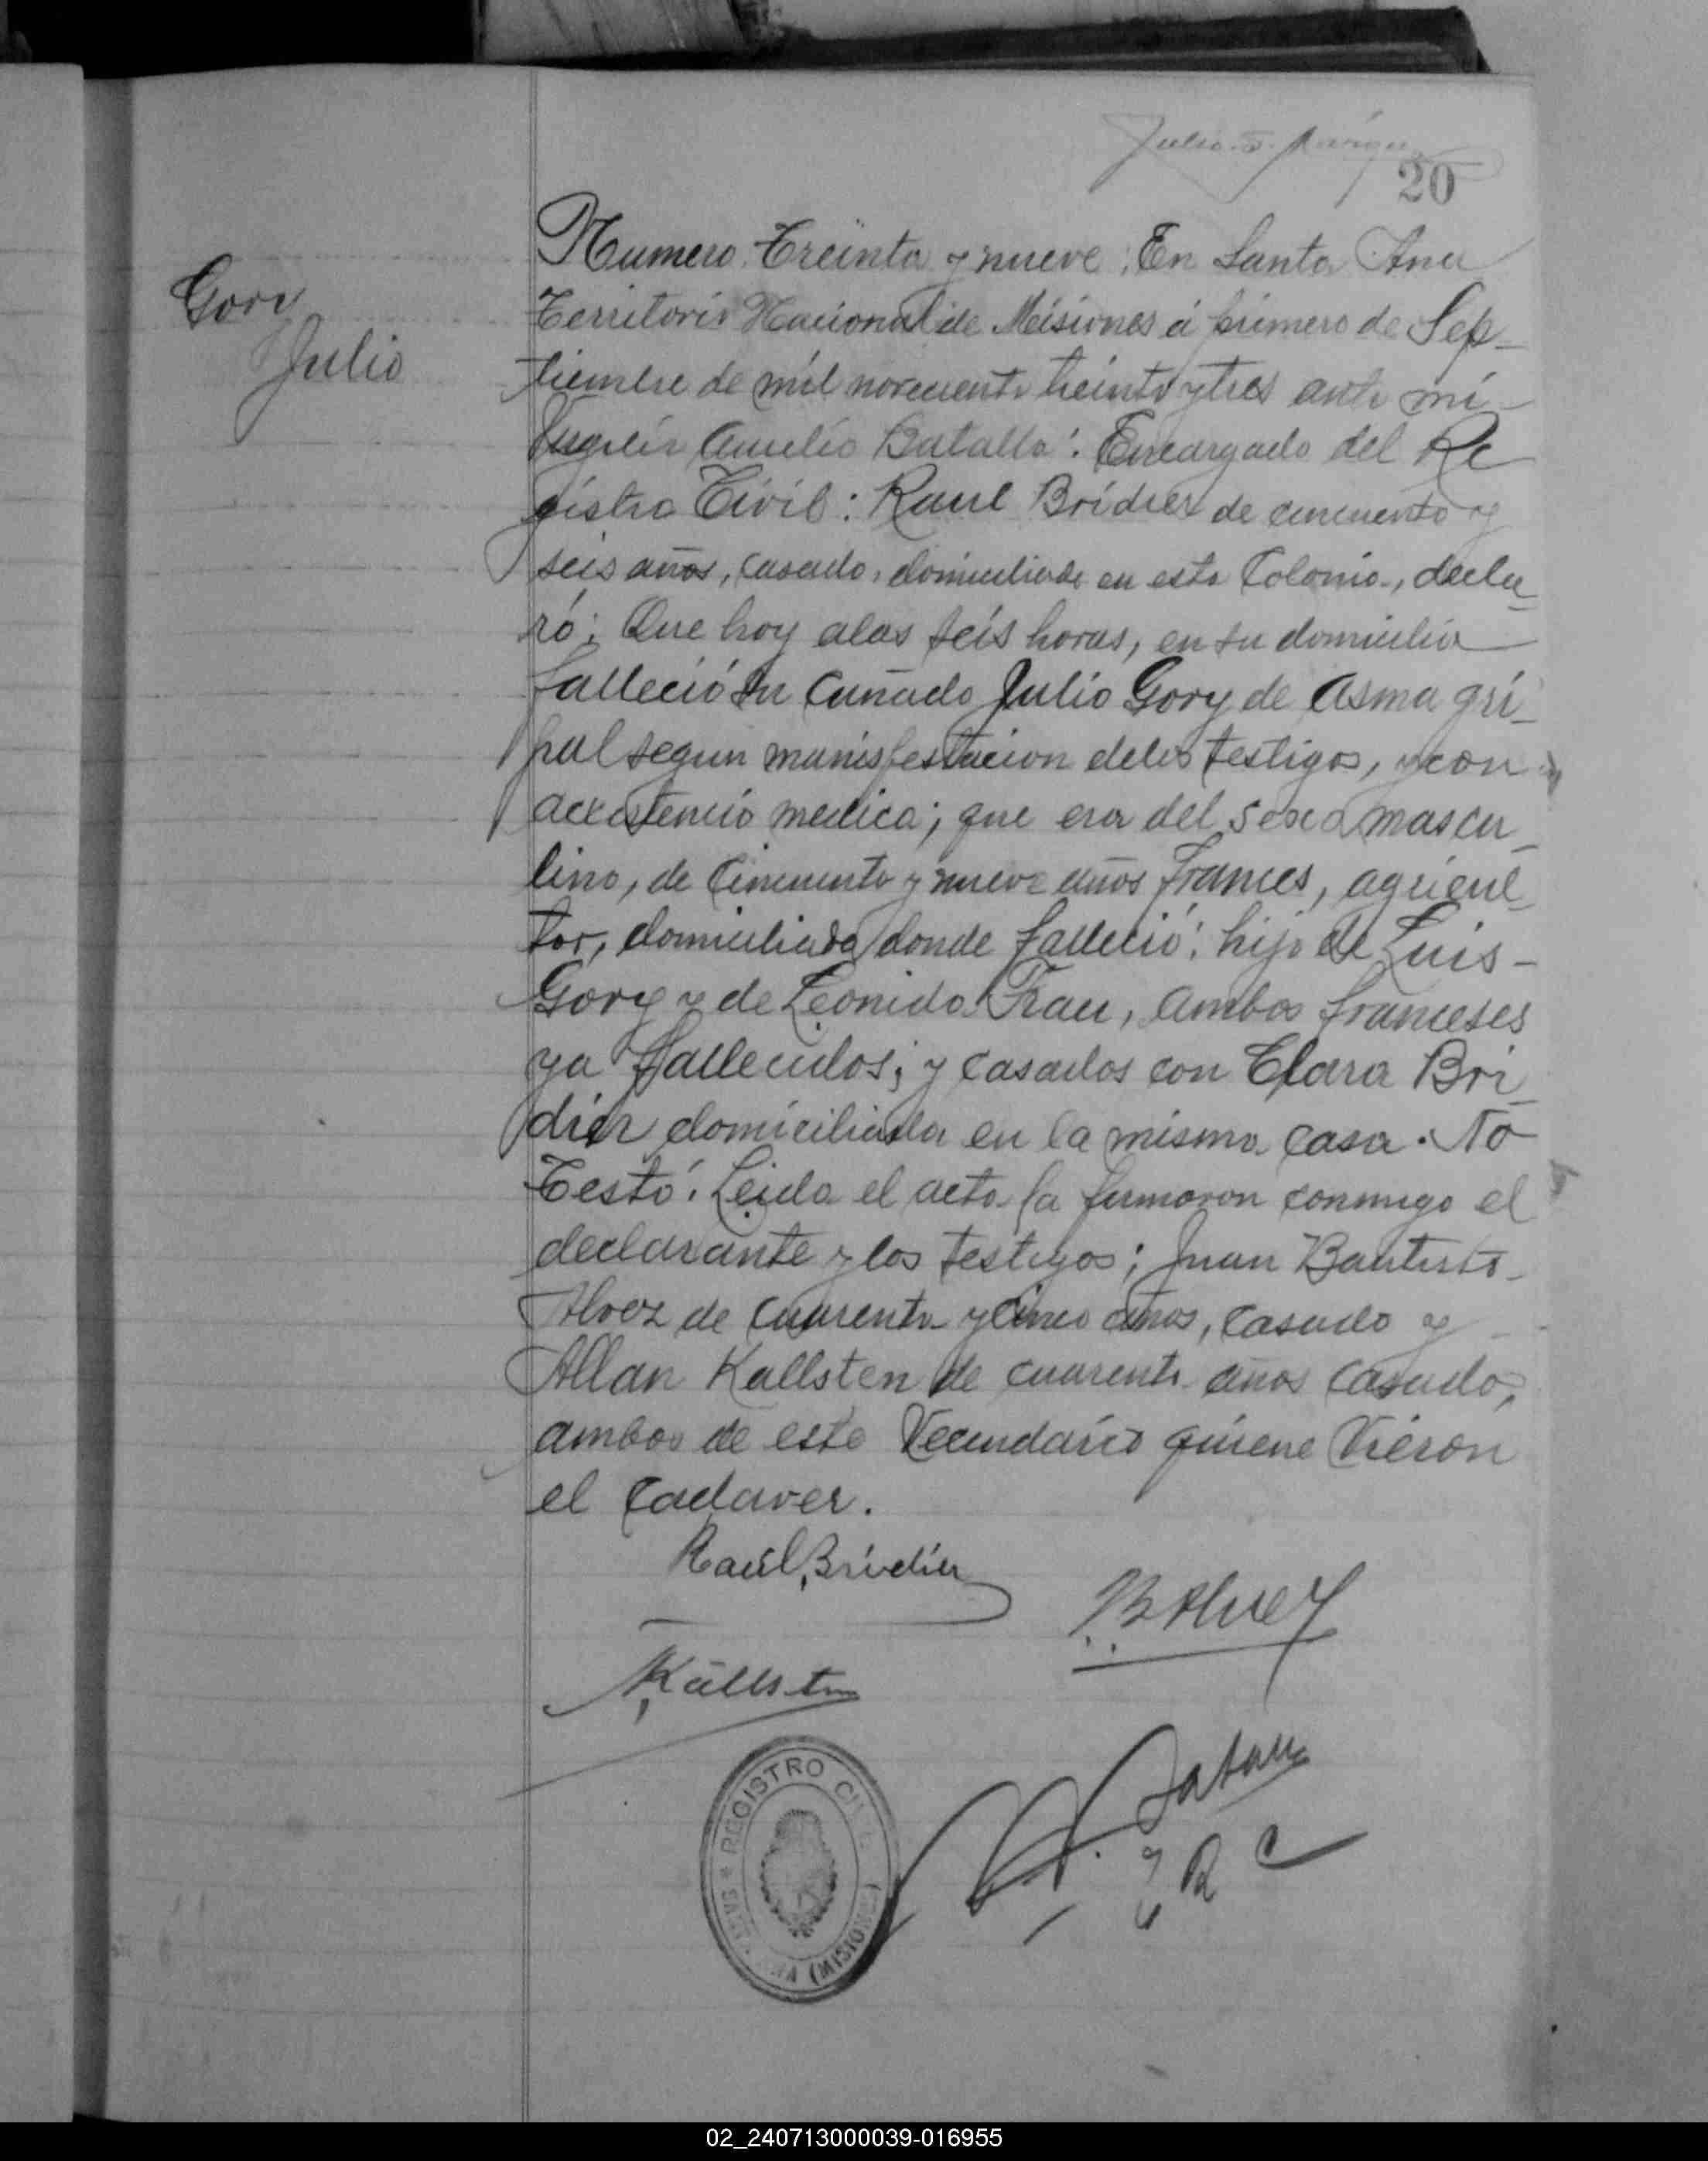 20
Gory
Julio
Numero Treinta y nueve: En Santa Ana
Territorio Nacional de Misiones á primero de Sep-
tiembre de mil novecento treinta y tres ante mi
Aurelio Batalla: Encargado del Re
gistro Civil: Raul Bridier de cincuenta y
seis años, casado, domiciliado en esta Colonia, decla-
ró: Que hoy alas seis horas, en su domicilio
falleció su cuñado Julio Gory de Asma gri-
pal segun manisfestacion delos testigos, y con
medica; que era del sexo mascu-
lino, de cincuenta y nueve años frances, agricul-
tor, domiciliado donde falleció: hijo de Luis-
Gory y de Leonida Frau, ambos franceses
ya fallecidos; y casados con Clara Bri-
dier domiciliada en la misma casa. No
Testó. Leida el acta la firmaron conmigo el
declarante y los testigos; Juan Bautista
Alvez de cuarenta y cinco años, casado y
Allan Kallsten de cuarenta años casado,
ambos de este Vecindario quiene Vieron
el cadaver.
Raúl Bridier
B Alvez
Kallsten
REGISTRO CIVIL
SANTA ANA (MISIONES)
02_240713000039-016955